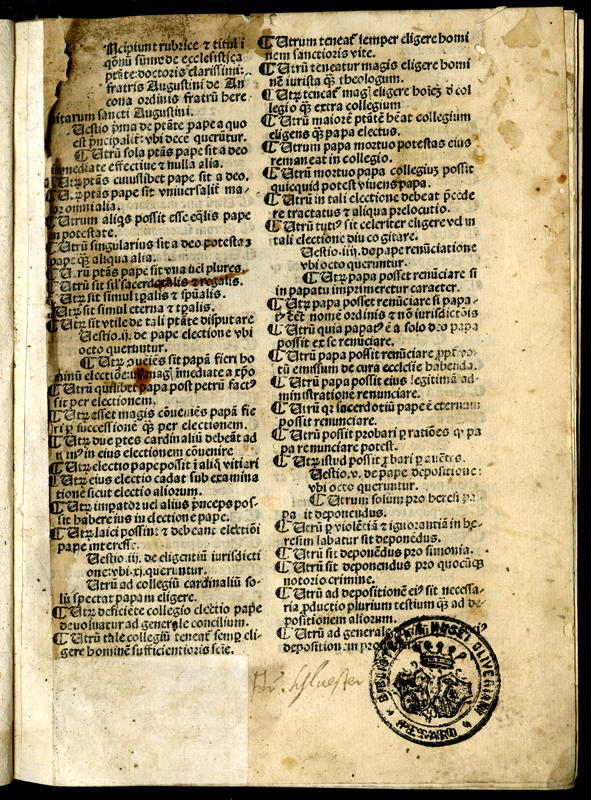 Ncipiunt rubrice ⁊ tituli
qõnũ sũme de ecclesiastica
ptãte: doctoris clarissimi:
fratris Augustini de An
cona ordinis fratrũ here
mitarum sancti Augustini.
Uestio pma de ptãte pape a quo
est pncipaliť: vbi dece querũtur.
¶ Utrũ sola ptãs pape sit a deo
immediate effectiue ⁊ nulla alia.
Utrꝫ ptãs cuiuslibet pape sit a deo.
ptãs pape sit vniuersaliť ma-
ior omni alia.
Utrum aliqs possit esse eqlis pape
in potestate.
Utrũ singularius sit a deo potestas
pape qꝫ aliqua alia.
Utrũ ptãs pape sit vna uel plures.
Utrũ sit sil' sacerdotalis ⁊ regalis.
Utrꝫ sit simul tpalis ⁊ spũalis.
Utꝝ sit simul eterna ⁊ tpalis.
Utꝝ sit vtile de tali ptãte disputare
Uestio .ij. de pape electione vbi
octo queruntur.
¶ Utrꝫ queiẽs sit papã fieri ho
minũ electiõe: uľ mag̃ imediate a xp̃o
Utrũ quilibet papa post petrũ fact9
sit per electionem.
¶ Utꝝ esset magis cõueniẽs papã fie
ri p successionẽ qꝫ per electionem.
¶ Utꝝ due ptes cardinaliũ debeãt ad
min9 in eius electionem cõuenire
¶ Utꝝ electio pape possit ĩ aliq̃ vitiari
¶ Utꝝ eius electio cadat sub examina
tione sicut electio aliorum.
¶ Utꝝ impator uel alius pnceps pos-
sit habere ius in electione pape.
¶ Utꝝ laici possint ⁊ debeant electiõi
pape interesse.
Uestio .iij. de eligentiũ iurisdicti
one: vbi .xj. queruntur.
¶ Utrũ ad collegiũ cardinaliũ so-
lũ spectat papam eligere.
¶ Utꝝ deficiẽte collegio electio pape
deuoluatur ad generale concilium.
¶ Utrũ tale collegiũ teneať semp eli-
gere hominẽ sufficientioris scie.
¶ Utrum teneať semper eligere homi
nem sanctioris vite.
¶ Utrũ teneatur magis eligere homi
nẽ iurista qꝫ theologum.
¶ Utꝝ teneať mag̃ eligere hoiẽꝫ d col
legio qꝫ extra collegium
¶ Utrũ maiorẽ ptãtẽ hẽat collegium
eligens qꝫ papa electus.
¶ Utrum papa mortuo potestas eius
remaneat in collegio.
¶ Utrũ mortuo papa collegiuꝫ possit
quicquid potest viuens papa.
¶ Utrũ in tali electione debeat pcede
re tractatus ⁊ aliqua prelocutio.
¶ Utrũ tuti9 sit celeriter eligere vel in
tali electione diu cogitare.
Uestio .iiij. de pape renũciatione
vbi octo queruntur.
¶ Utꝝ papa posset renũciare si
in papatu imprimeretur caracter.
¶ Utꝝ papa posset renũciare si papa-
t9 eẽt nomẽ ordinis ⁊ nõ iurisdictõis
¶ Utrũ quia papat9 ẽ a solo deo papa
possit ex se renunciare.
¶ Utrũ papa possit renũciare ppť vo-
tũ emissum de cura ecclesie habenda.
¶ Utrũ papa possit eius legitimã ad-
ministratione renunciare.
¶ Utrũ qꝛ sacerdotiũ pape ẽ eternum
possit renunciare.
¶ Utrũ possit probari p ratiões qꝫ pa
pa renunciare potest.
¶ Utꝝ istud possit pbari p auctẽs.
Uestio .v. de pape depositione:
vbi octo queruntur.
¶ Utrum solum pro heresi pa
pa sit deponendus.
¶ Utrũ p violẽtiã ⁊ ignorantiã in he-
resim labatur sit deponẽdus.
¶ Utrũ sit deponẽdus pro simonia.
¶ Utrũ sit deponendus pro quocũqꝫ
notorio crimine.
¶ Utrũ ad depositionẽ ei9 sit necessa-
ria pductio plurium testium qꝫ ad de-
positionem aliorum.
¶ Utrũ ad generale
deposition
BIBLIOTHECA MUSEI OLIVERIANI
PESARO